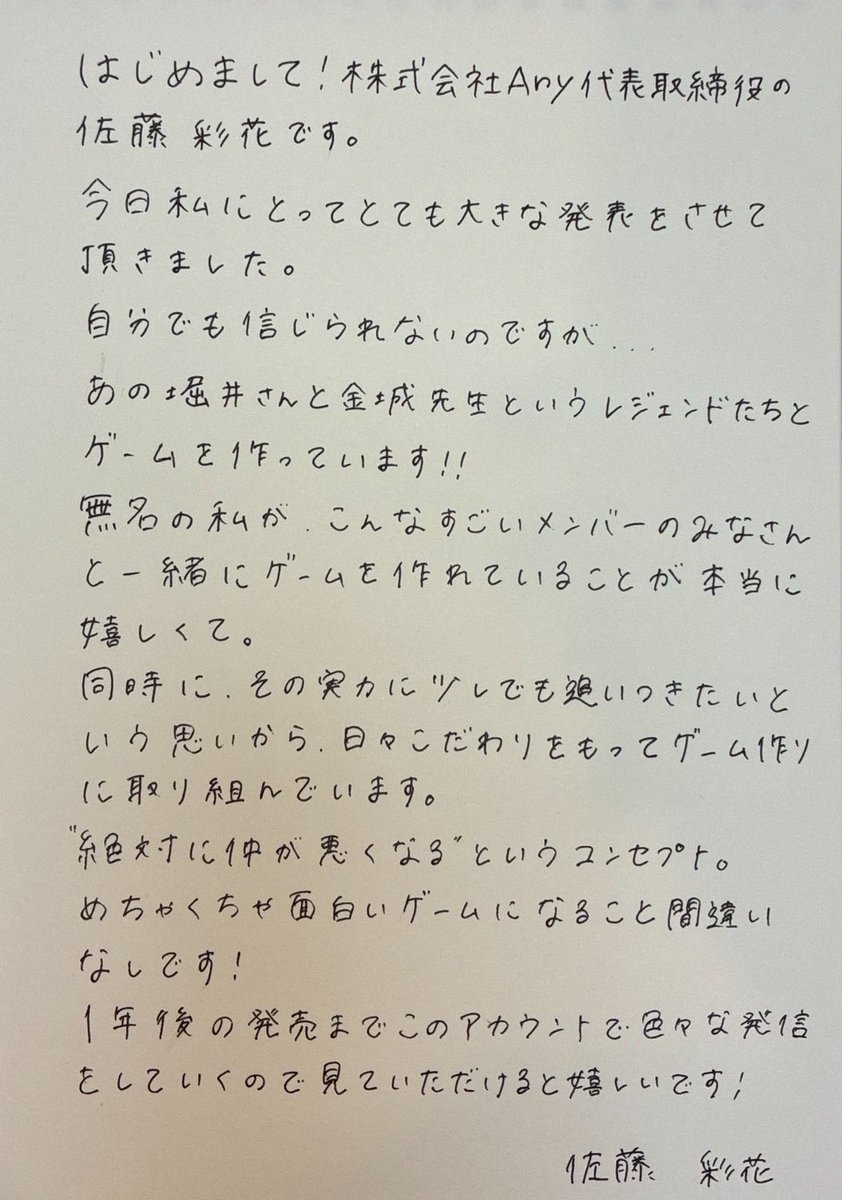 はじめまして!株式会社Any代表取締役の
佐藤 彩花です。
今日私にとってとても大きな発表をさせて
頂きました。
自分でも信じられないのですが...
あの堀井さんと金城先生というレジェンドたちと
ゲームを作っています!!
無名の私が、こんなすごいメンバーのみなさん
と一緒にゲームを作れていることが本当に
嬉しくて。
同時に、その実力に少しでも追いつきたいと
いう思いから、日々こだわりをもってゲーム作り
に取り組んでいます。
"絶対に仲が悪くなる"というコンセプト。
めちゃくちゃ面白いゲームになること間違い
なしです!
1年後の発売までこのアカウントで色々な発信
をしていくので見ていただけると嬉しいです!
佐藤 彩花